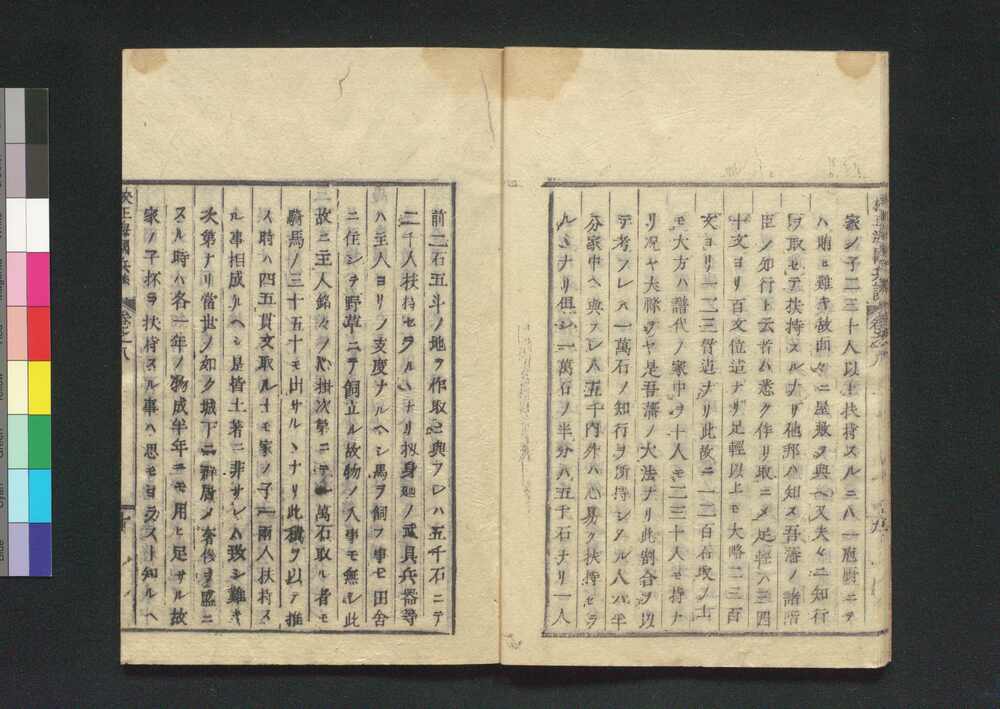 家ノ子二三十人以上扶持スルニハ一庖廚ニテ
ハ賄ヒ難キ故面々ニ屋敷ヲ與ヘ又夫々ニ知行
ヲ取セテ扶持スルナリ他邦ハ知ス吾藩ノ諸
臣ノ知行ト云者ハ悉ク作リ取ニメ足輕ハ三四
十文ヨリ百文位迠ナリ足輕以上モ大略二三百
文ヨリ一二三貫迠ナリ此故ニ一二百石取ノ士
モ大方ハ譜代ノ家中ヲ十人モ二三十人モ持ナ
リ况ヤ大祿ヲヤ是吾藩ノ大法ナリ此割合ヲ以
テ考フレハ一萬石ノ知行ヲ所持シタル人ハ半
分家中ヘ與フレハ五千内外ハ心易ク扶持セラ
ルヽナリ但シ一萬石ノ半分ハ五千石ナリ一人
前二石五斗ノ地ヲ作取ニ與フレハ五千石ニテ
二千人扶持セラルヽナリ扨身廻ノ武具兵器等
ハ主人ヨリノ支度ナルヘシ馬ヲ飼フ事モ田舍
ニ住シテ野草ニテ飼立ル故物ノ入事モ無シ此
故ニ主人銘々ノ心掛次第ニテ一萬石取ル者モ
騎馬ノ三十五十モ出サルヽナリ此積ヲ以テ推
ス時ハ四五貫文取ル士モ家ノ子一兩人扶持ス
ル事相成ルヘシ是皆土著ニ非サレハ致シ難キ
次第ナリ當世ノ如ク城下ニ群居メ奢侈ヲ盛ニ
スル時ハ各一年ノ物成半年ニモ用ヒ足サル故
家ノ子杯ヲ扶持スル事ハ思モヨラスト知ルヘ
校正海國兵談
卷之八